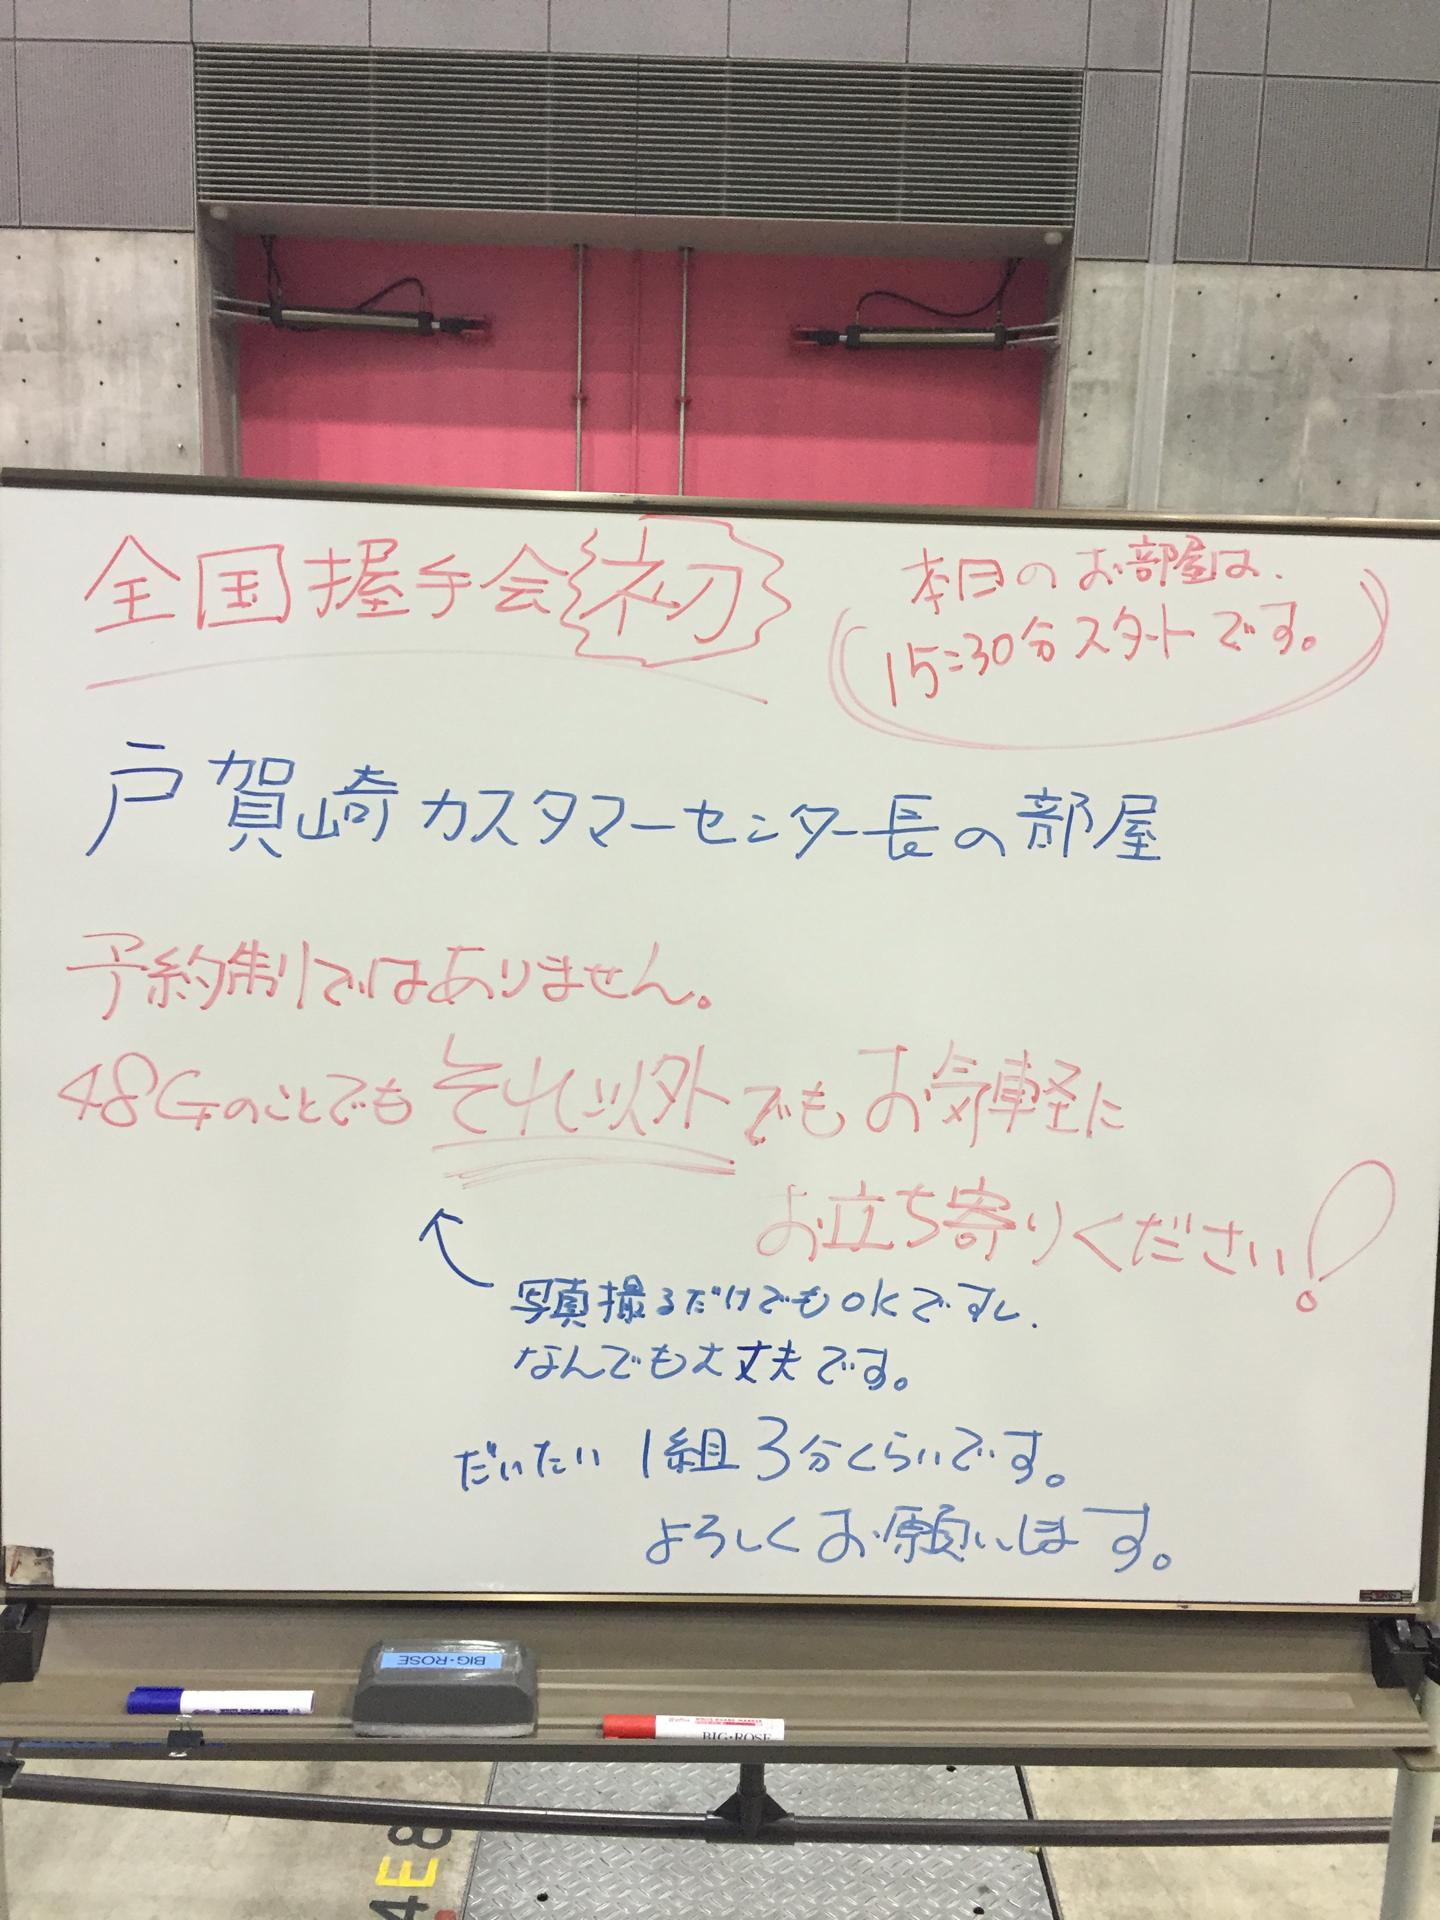 全国握手会初
本日のお部屋は、
15:30分スタートです。
戸賀崎カスタマーセンター長の部屋
予約制ではありません。
48Gのことでもそれ以外でもお気軽に
お立ち寄りください!
写真撮るだけでもOKですし、
なんでも大丈夫です。
だいたい 1組3分くらいです。
よろしくお願いします。
BIG・ROSE
WHITE BOARD MARKER
BIG・ROSE
4E8